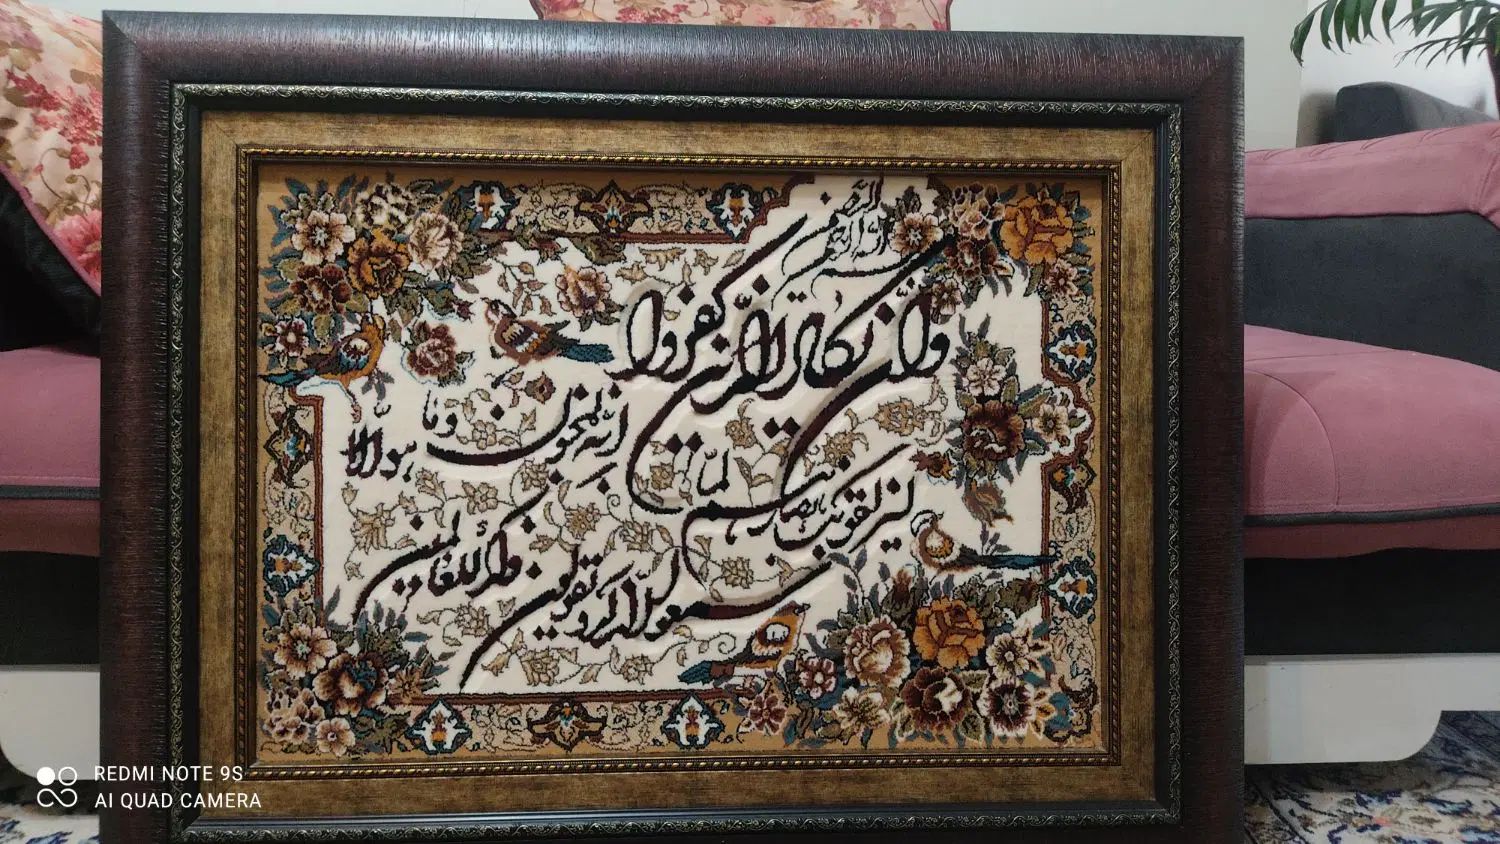 بسم الله الرحمن الرحیم
وان یکاد الذین کفروا
لیزلقونک بابصارهم لما
سمعوا الذکر ویقولون
انه لمجنون وما
هو الا
ذکر للعالمین
REDMI NOTE 9S
AI QUAD CAMERA